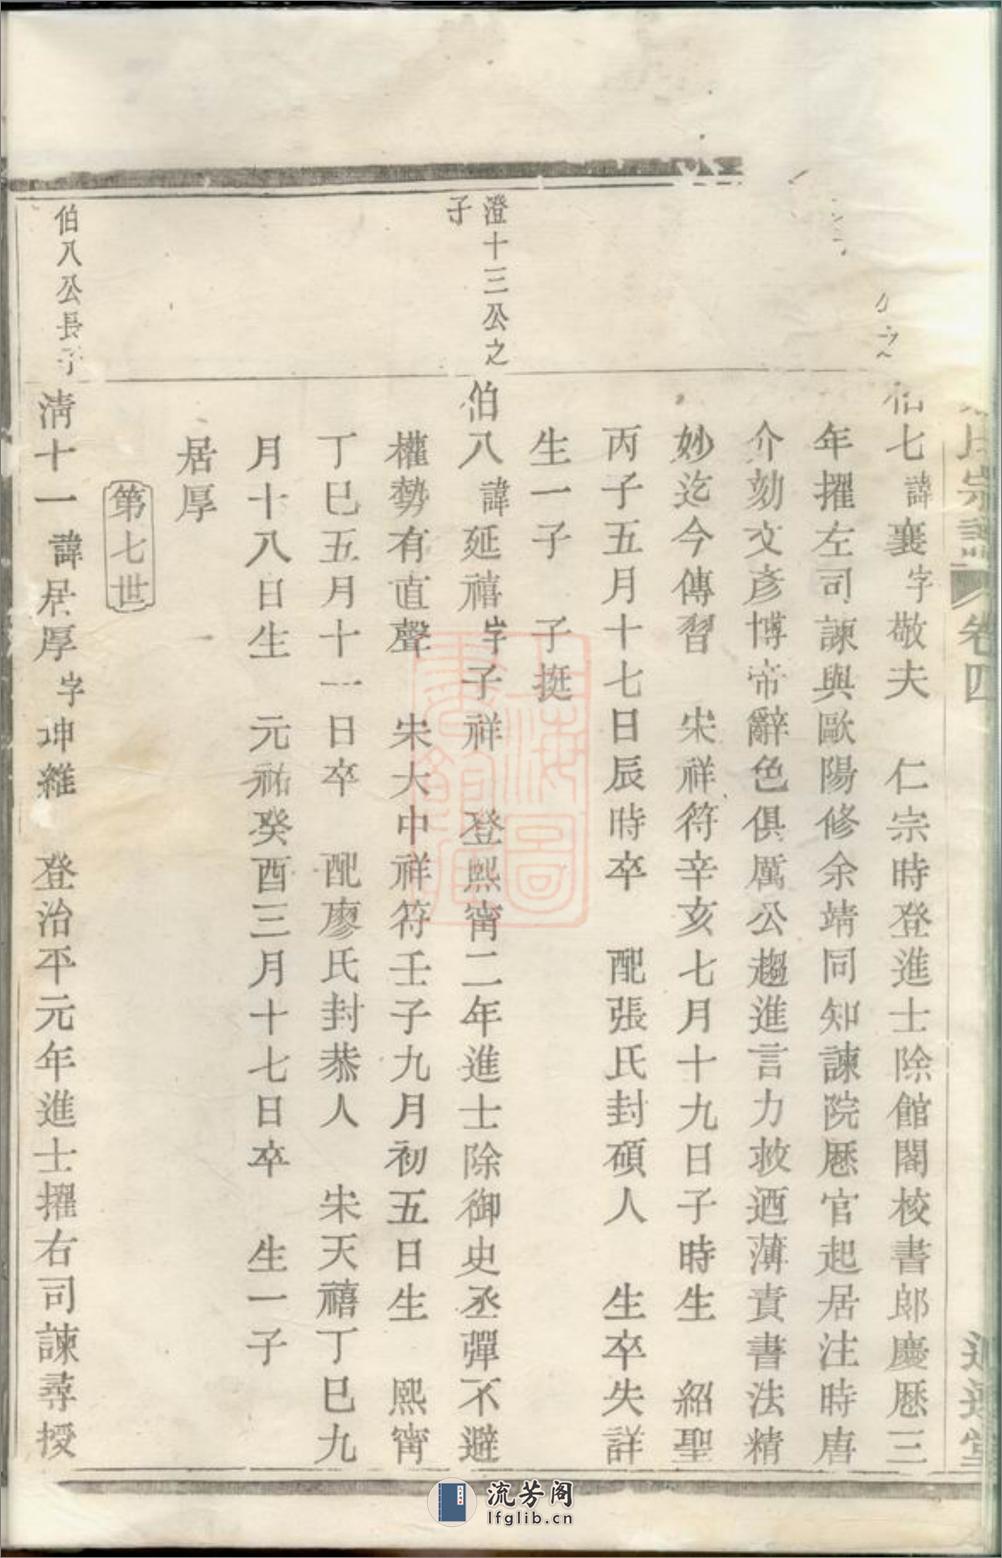 氏宗譜 卷四
伯七諱襄字敬夫 仁宗時登進士除館閣校書郎慶厯三
年擢左司諫與歐陽修余靖同知諫院厯官起居注時唐
介劾文彥博帝辭色俱厲公趨進言力救迺薄責書法精
妙迄今傳習 宋祥符辛亥七月十九日子時生 紹聖
丙子五月十七日辰時卒 配張氏封碩人 生卒失詳
生一子 子挺
澄十三公之
子
伯八諱延禧字子祥 登熙甯二年進士除御史丞彈不避
權勢有直聲 宋大中祥符壬子九月初五日生 熙甯
丁巳五月十一日卒 配廖氏封恭人 宋天禧丁巳九
月十八日生 元祐癸酉三月十七日卒 生一子
居厚
第七世
伯八公長子
淸十一諱居厚字坤維 登治平元年進士擢右司諫尋授
上海圖
書館藏
流芳阁
lfglib.cn